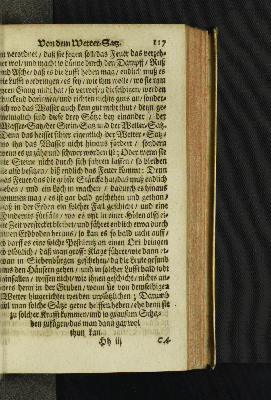 Von dem Wetter-Satz. 117
verordnet / daß sie fegen soll: das Feuer das verzeh-
net wol / und macht so dünne durch den Dampff / Ruß
und Asche / daß es die Lufft heben mag / endlich muß es
die Lufft vordringen / es sey / wie ihm wolle / wo sie ihren
Gang nicht hat / so verwerfen dieselbigen / werden
druckend darinnen / und richten nichts guts an / sonder-
lich wo das Wasser auch kan gut thun / denn ge-
meiniglich sind diese drey Sätze bey einander / der
Wasser-Satz / der Stein-Satz und der Wetter-Satz.
Denn das heisset hier eigentlich der Wetter-Satz /
wo ihn das Wasser nicht hinaus fördert / sondern
wenn es zu zähe und schwer worden ist: Oder wenn sie
die Steine nicht durch sich fahren lassen / so bleiben
sie also besitzen / biß endlich das Feuer kömt: Denn
was Feuer das die gröste Stärcke hat / das muß endlich
heben / und ein Loch in machen / dadurch es hinaus
kommen mag / es ist gar bald geschehen und gethan /
daß in der Erden ein solcher Fall geschicht / und eine
Hindernis fürfällt / wo es nun in einer Hölen also ei-
ne Zeit verstecket bleibet / und fähret endlich etwa durch
einen Erdboden heraus / so kan es so bald nicht auff /
es darff es eine solche Pestilentz an einen Ort bringen
plötzlich / daß man grosse Klage führet / wie dann et-
wan in Siebenbürgen geschehen / da die Leute gesund
aus den Häusern gehen / und in solcher Lufft bald todt
einfallen / wissen nicht / wie ihnen geschicht / nichts an-
ders denn in der Gruben / wenn sie von denselbigen
Wetter hingerichtet werden urplötzlichen; Darumb
soll man solche Sätze gerne helffen heben / ehe denn sie
zu solcher Krafft kommen / und so grausam Scha-
den zufügen / das man dann gar wol
thun kan.
Hh iij CA